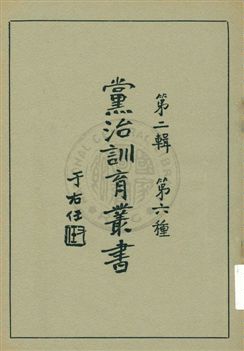 第二輯 第六種
黨治訓育叢書
于右任